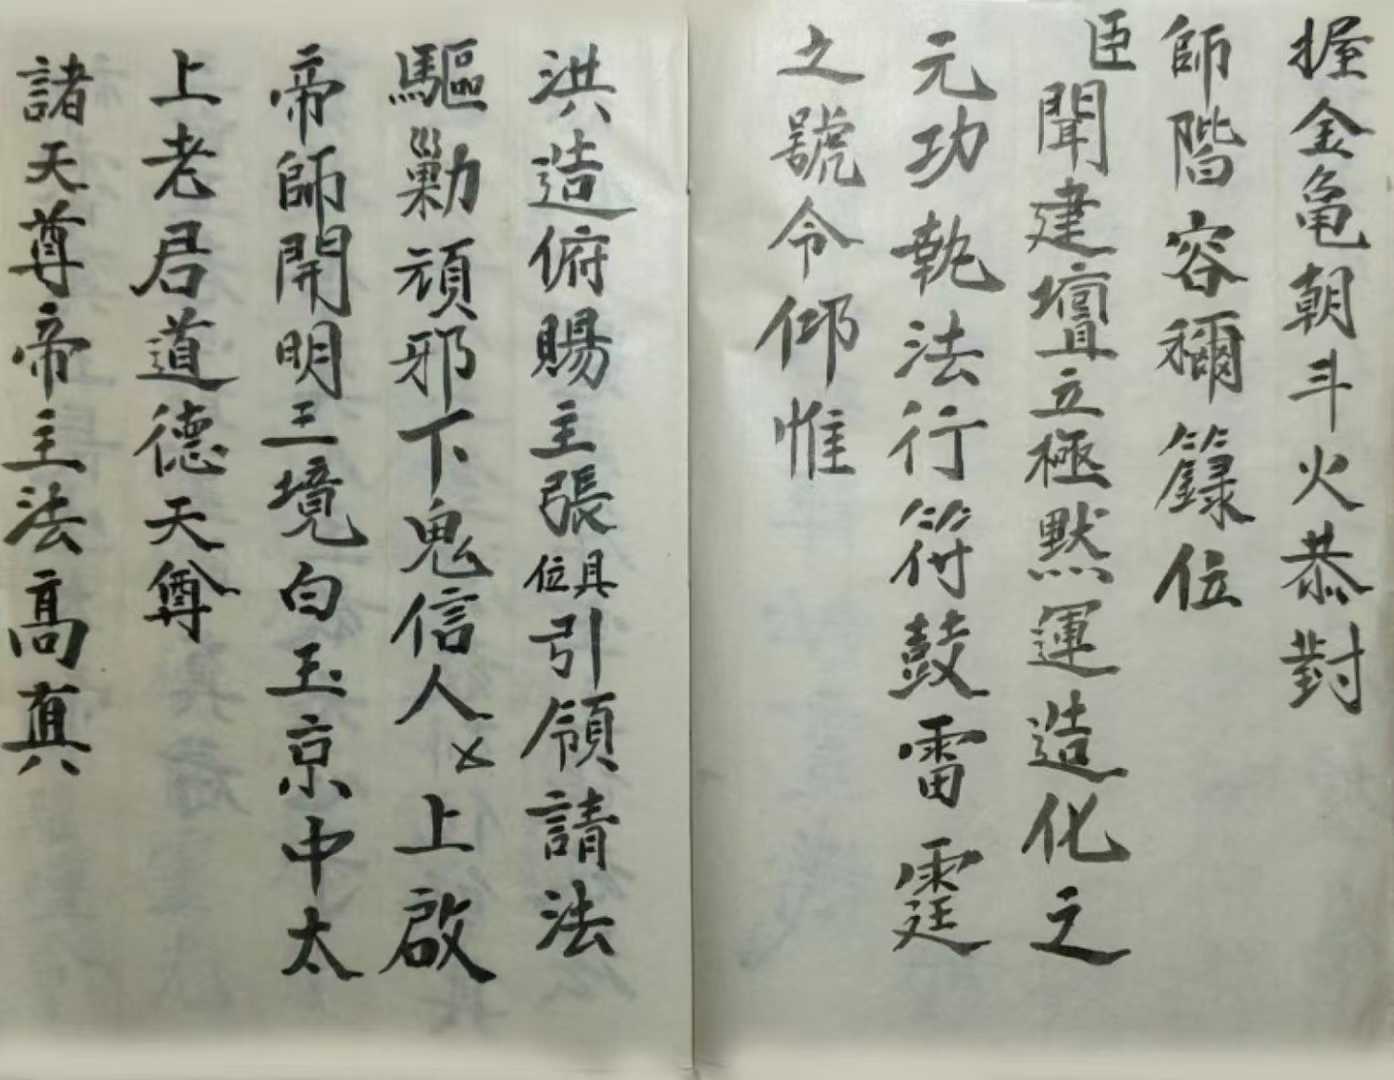 握金亀朝斗火恭對
師階容稱籙位
臣聞建壇立極默運造化之
元功執法行符鼓雷霆
之號令仰惟
洪造俯賜主張具位引領請法
驅勦頑邪下鬼信人乂上啟
帝師開明三境白玉京中太
上老君道德天尊
諸天尊帝主法高真